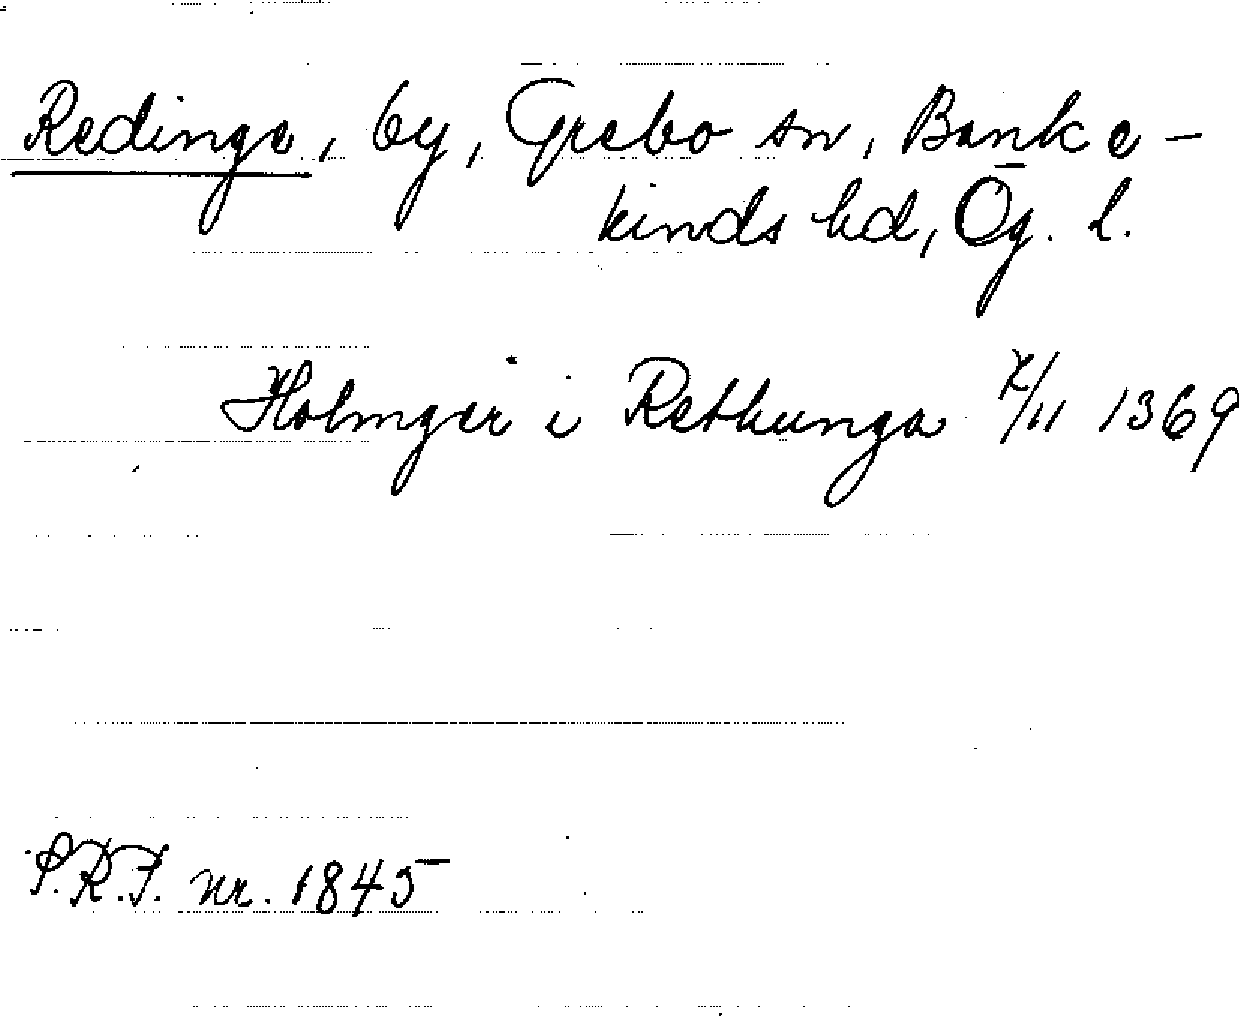 Redinge, by, Grebo sn, Banke-
kinds hd, Ög. l.
Holmger i Rethunga 7/11 1369
S.R.P. nr. 1845